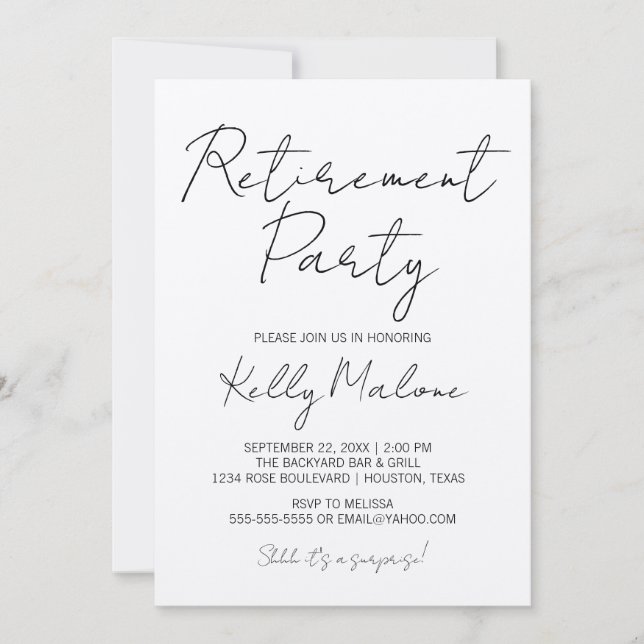 Retirement
Party
PLEASE JOIN US IN HONORING
Kelly Malone
SEPTEMBER 22, 20XX | 2:00 PM
THE BACKYARD BAR & GRILL
1234 ROSE BOULEVARD | HOUSTON, TEXAS
RSVP TO MELISSA
555-555-5555 OR EMAIL@YAHOO.COM
Shhh it's a surprise!